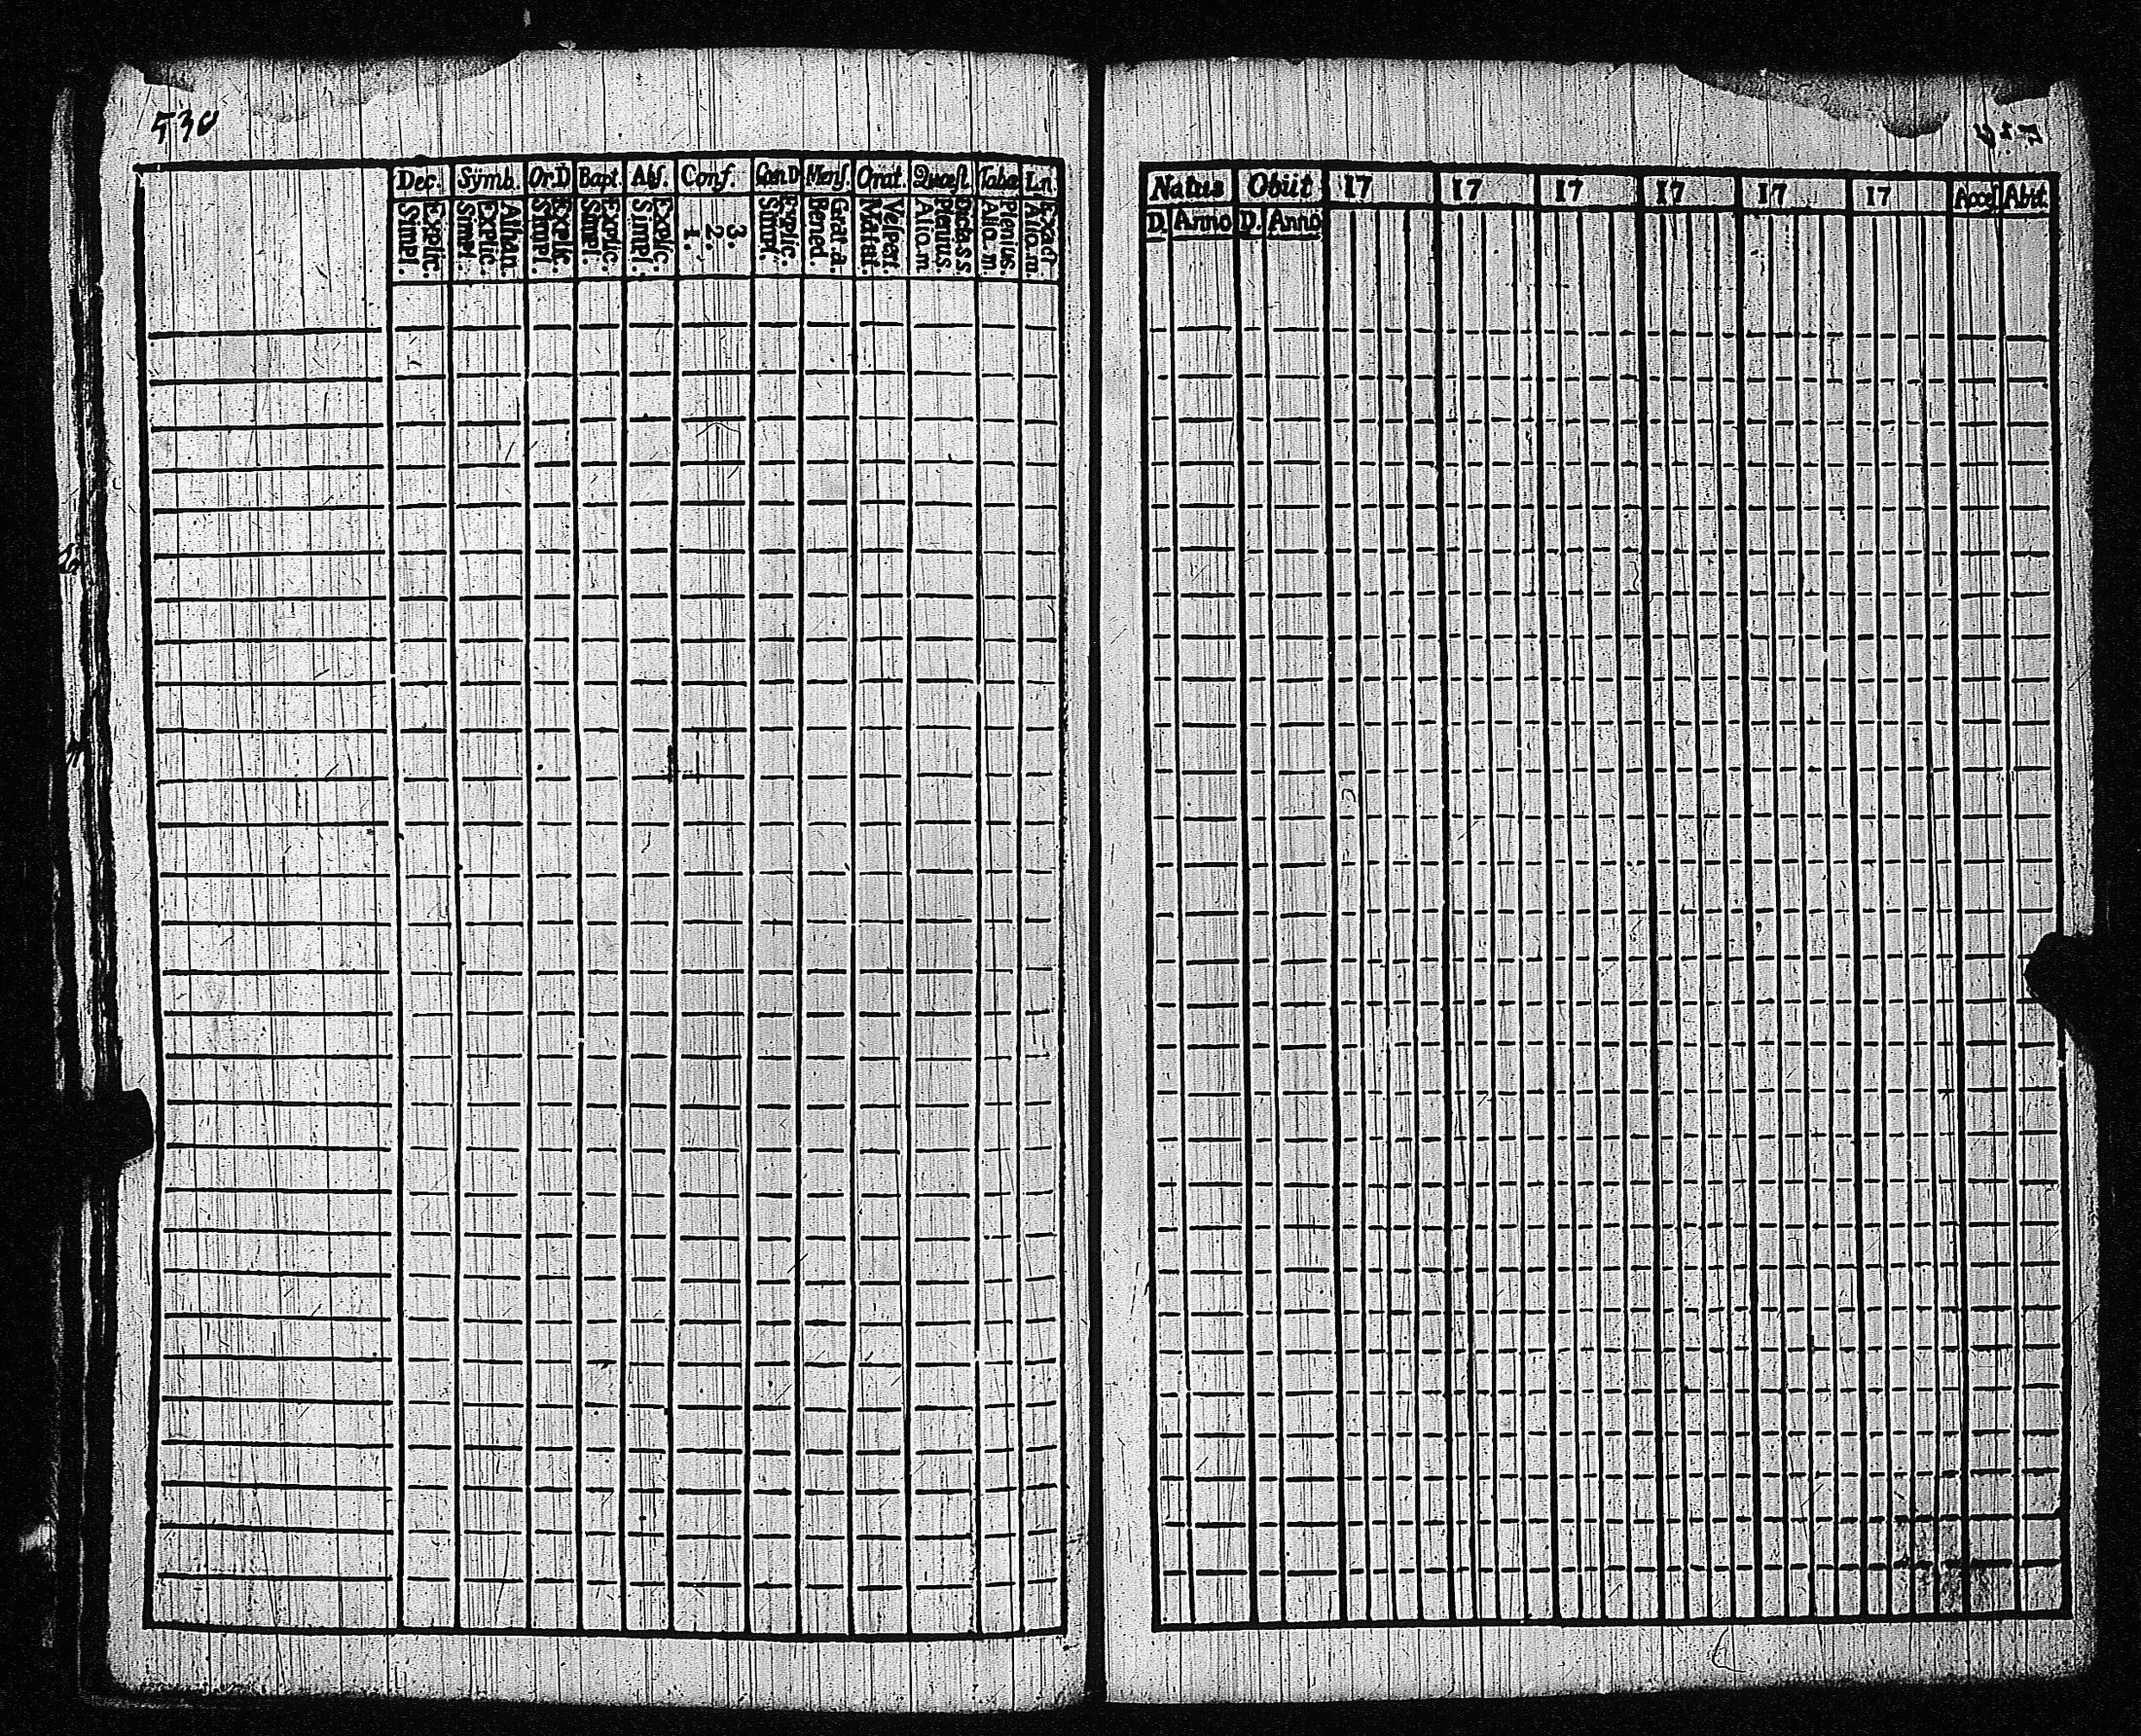 530
Dec. Symb. Or.D Bapt. Abſ. Conf. Cœn.D Menſ. Orat. Quæſt. Tabæ Ln.
Explic. Simpl. Athan. Explic. Simpl. Explic. Simpl. Explic. Simpl. Explic. Simpl. 3. 2. 1. Explic. Simpl. Grat.a. Bened. Veſpert. Matut. Dictis s.s. Plenius Alio.m Plenius. Alio.m. Exact Alio.m
Natus Obiit 17 17 17 17 17 17 Acceſ. Abit.
D. Anno D. Anno